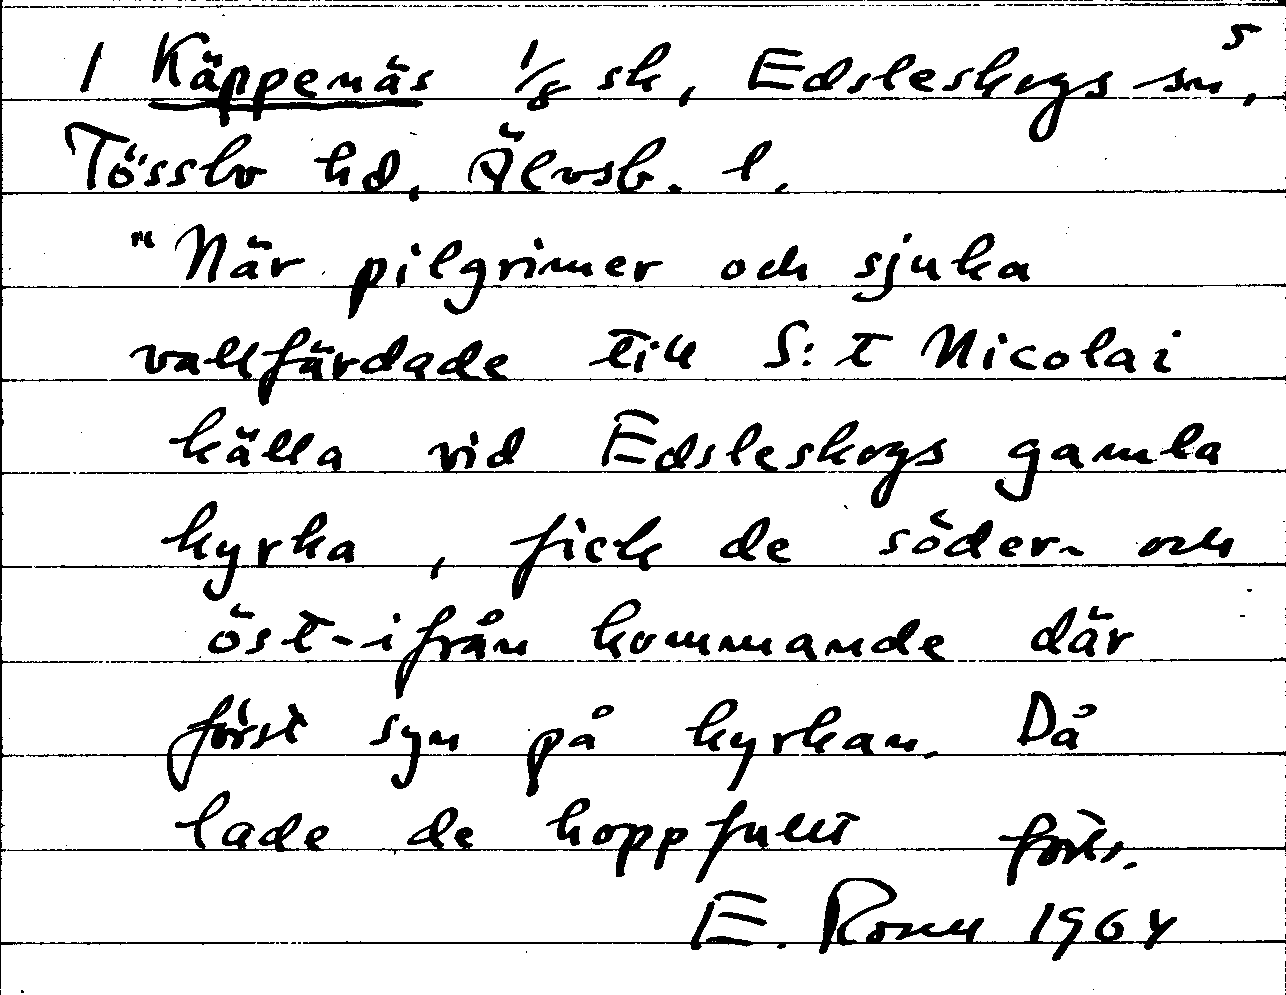 5
1 Käppenäs 1/8 sk, Edsleskogs sn,
Tössbo hd, Älvsb. l.
"När pilgrimer och sjuka
vallfärdade till S:t Nicolai
källa vid Edsleskogs gamla
kyrka, fick de söder- och
öst-ifrån kommande där
först syn på kyrkan. Då
lade de hoppfullt forts.
E. 1964